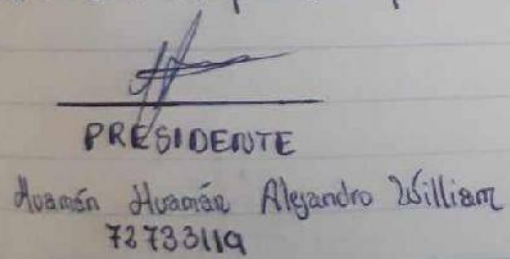 PRESIDENTE
Huamán Huamán Alejandro William
72733119